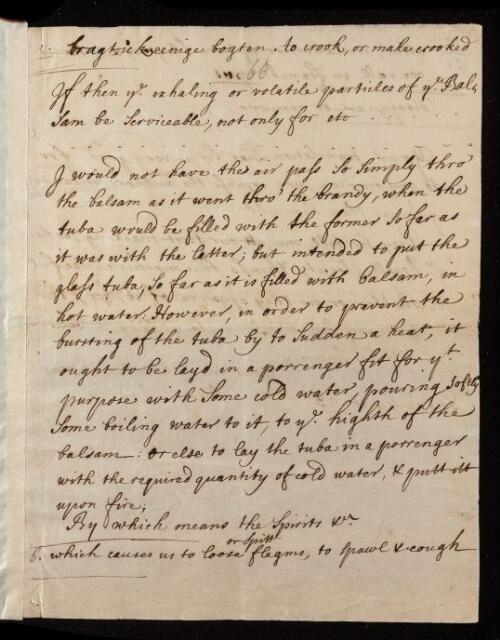 bragt eenige bogten. to crook, or make crooked
If then yͤ. exhaling or volatile particles of yͤ. Bal,
Sam be Serviceable, not only for etc
I would not have the air pass So Simply thro
the balsam as it went thro' the brandy, when the
tuba would be filled with the former So far as
it was with the latter; but intended to put the
glass tuba, So far as it is filled with balsam, in
hot water. However, in order to prevent the
bursting of the tuba by to Sudden a heat, it
ought to be layd in a porrenger fit for yͭ.
purpose with Some cold water, pouring Softly
Some boiling water to it, to yͤ. highth of the
balsam: or else to lay the tuba in a porrenger
with the required quantity of cold water, & putt itt
upon fire;
By which means the Spirits &c.
or Spitt
6. which causes us to loose flegms, to Spawl & cough